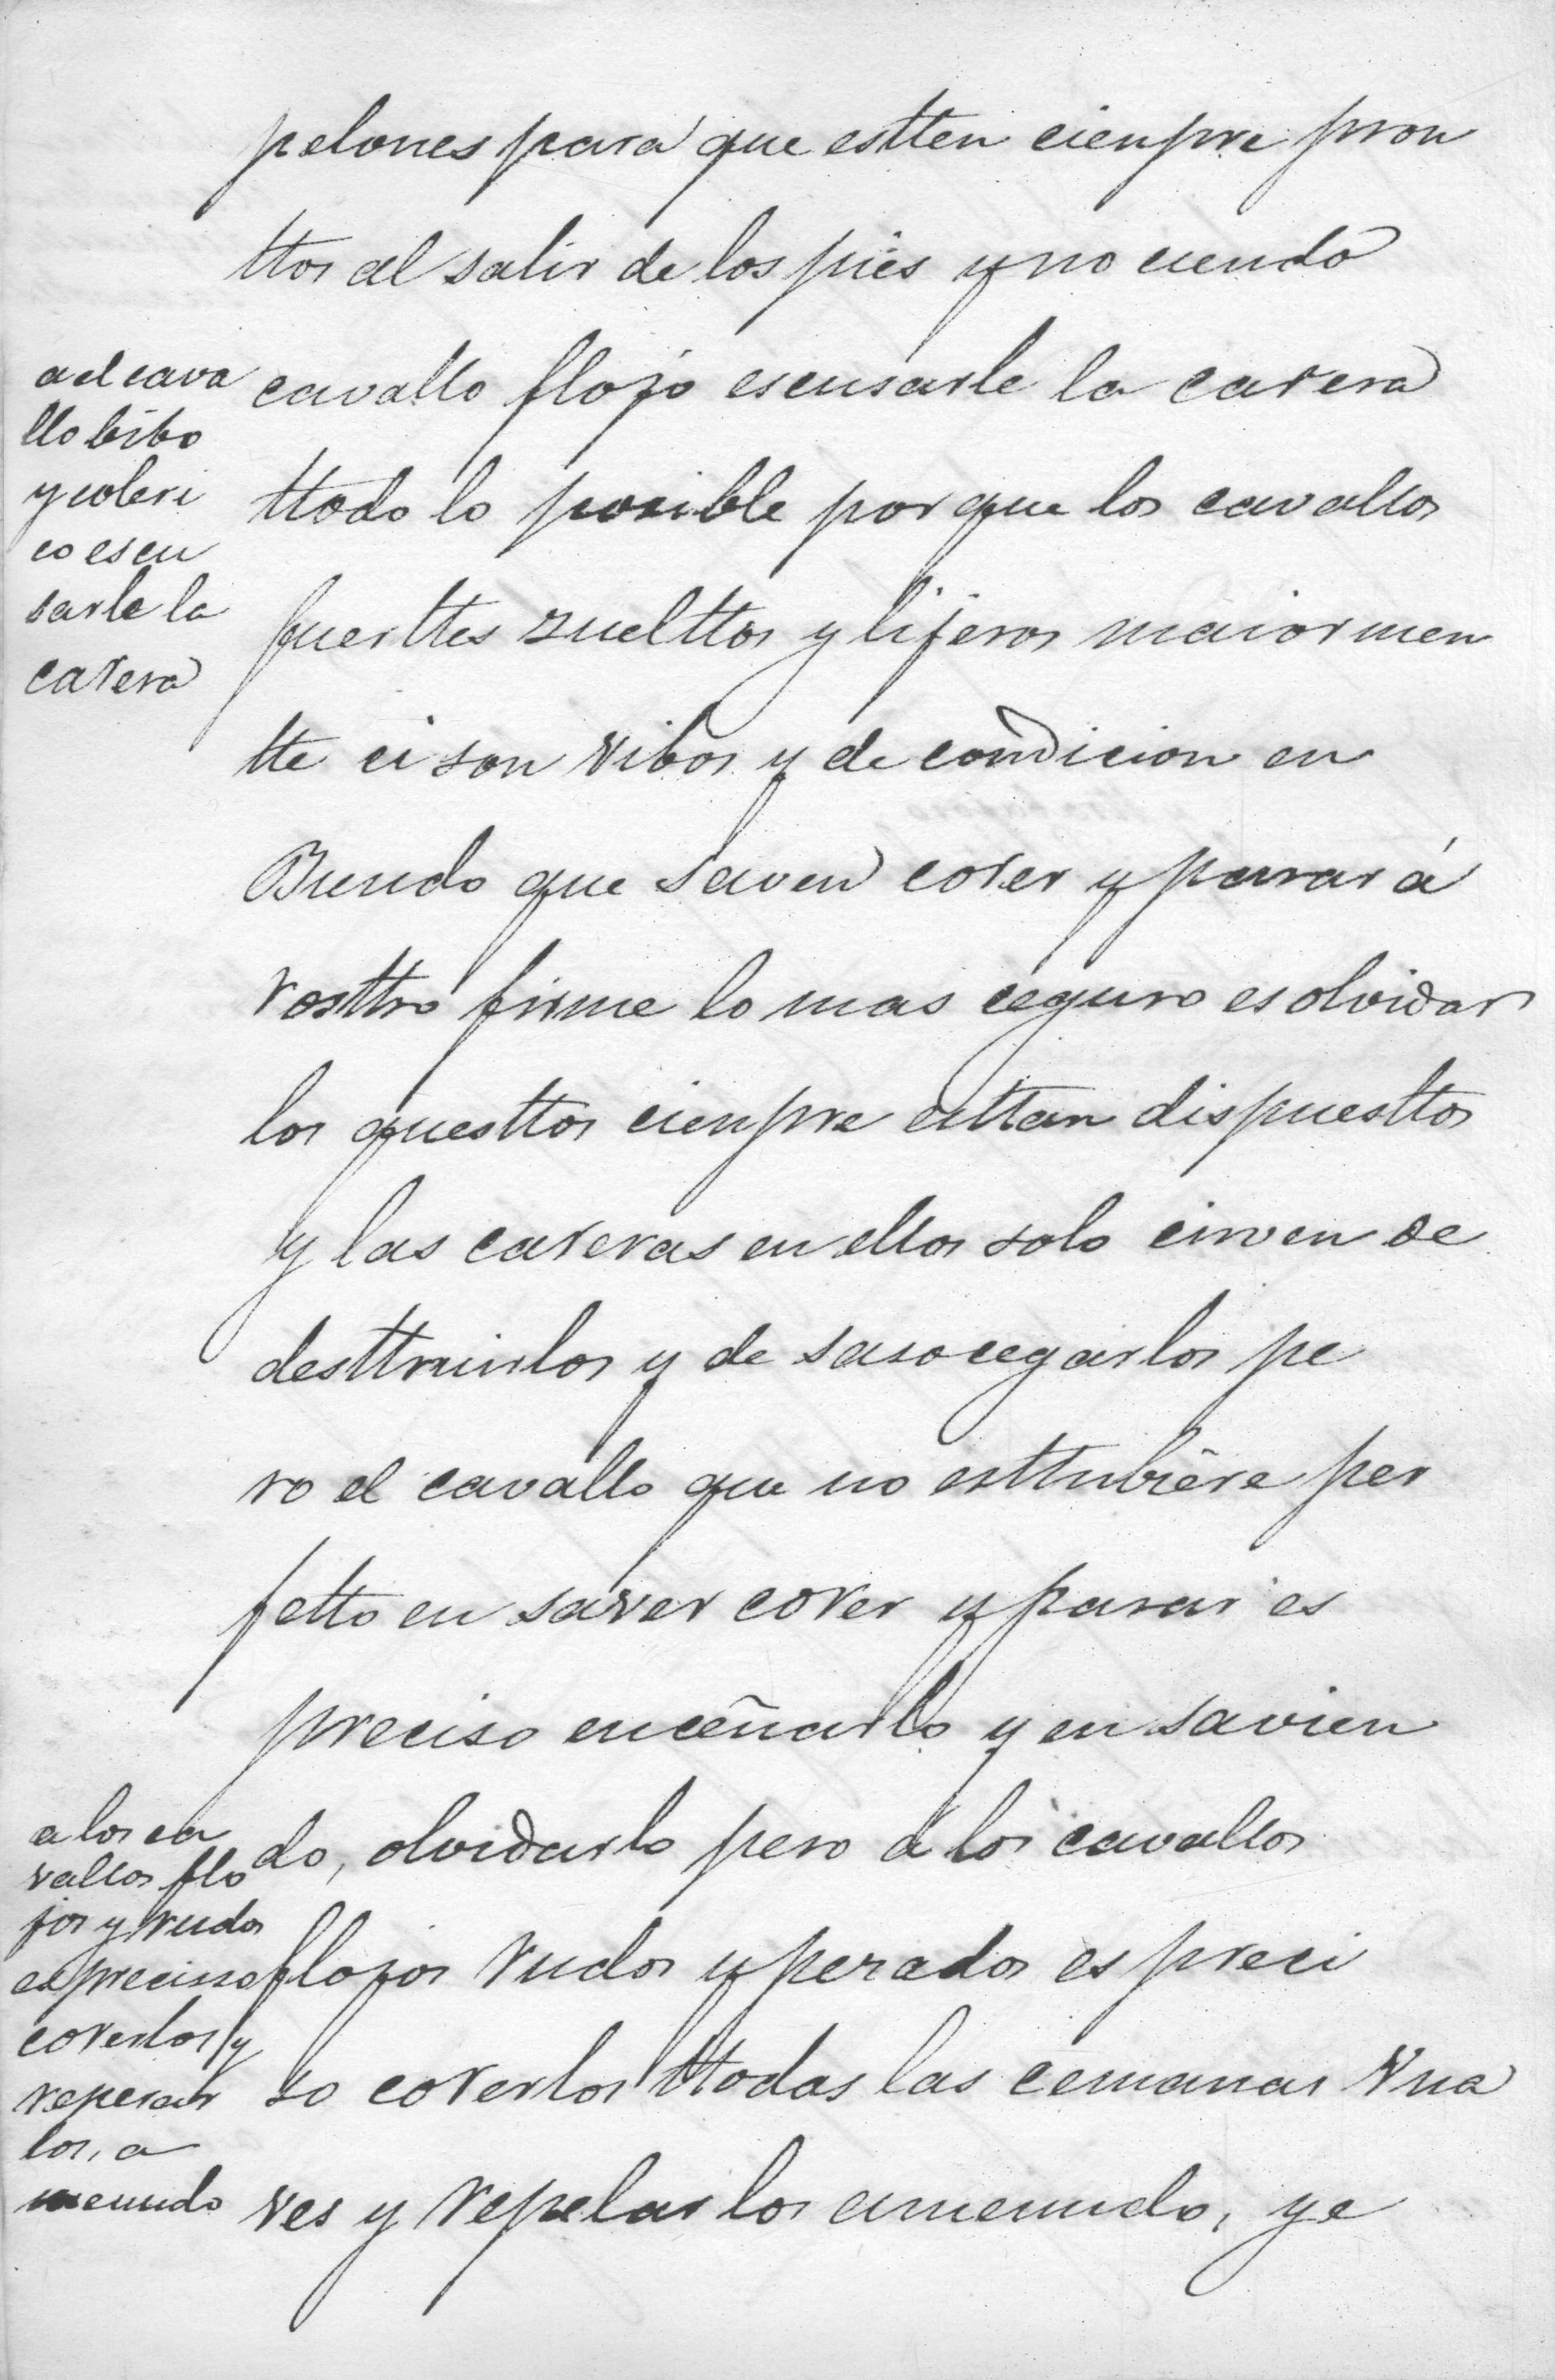 pelones para que estten cienpre pron
ttos al salir de los pies y no ciendo
a el cava
llo bibo
y coleri
co escu
sarle la
carera
cavallo flojo escusarle la carera
ttodo lo posible porque los cavallos
fuerttes zuelttos y lijeros maiormen
tte ci son vibos y de condicion en
Buendo que saven corer y parar á
rosttro firme lo mas ceguro es olvidar
los questtos cienpre esttan dispuesttos
y las careras en ellos solo cirven de
desttruirlos y de sasocegarlos pe
ro el cavallo que no esttubiere per
fetto en saver corer y parar es
preciso enceñarlo y en savien
do, olvidarlo pero á los cavallos
a los ca
vallos flo
jos y rudos
es precisso
corerlos y
repesar
los, a
menudo
flojos rudos y pezados es preci
so corerlos ttodas las cemanas vna
ves y repelarlos amenudo, ye